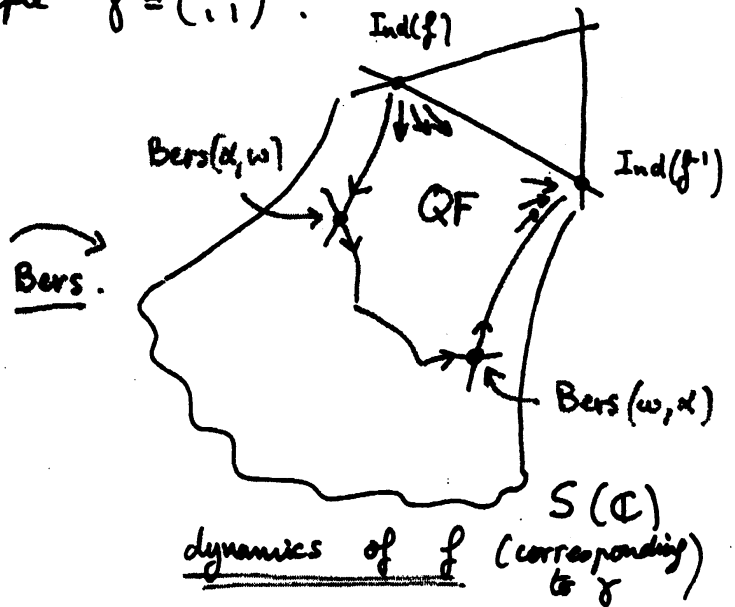 γ = ( , 1 ) .
Ind(f)
Bers(α, ω)
QF
Ind(f⁻¹)
Bers.
Bers(ω, α)
S(ℂ)
dynamics of f (corresponding
to γ)